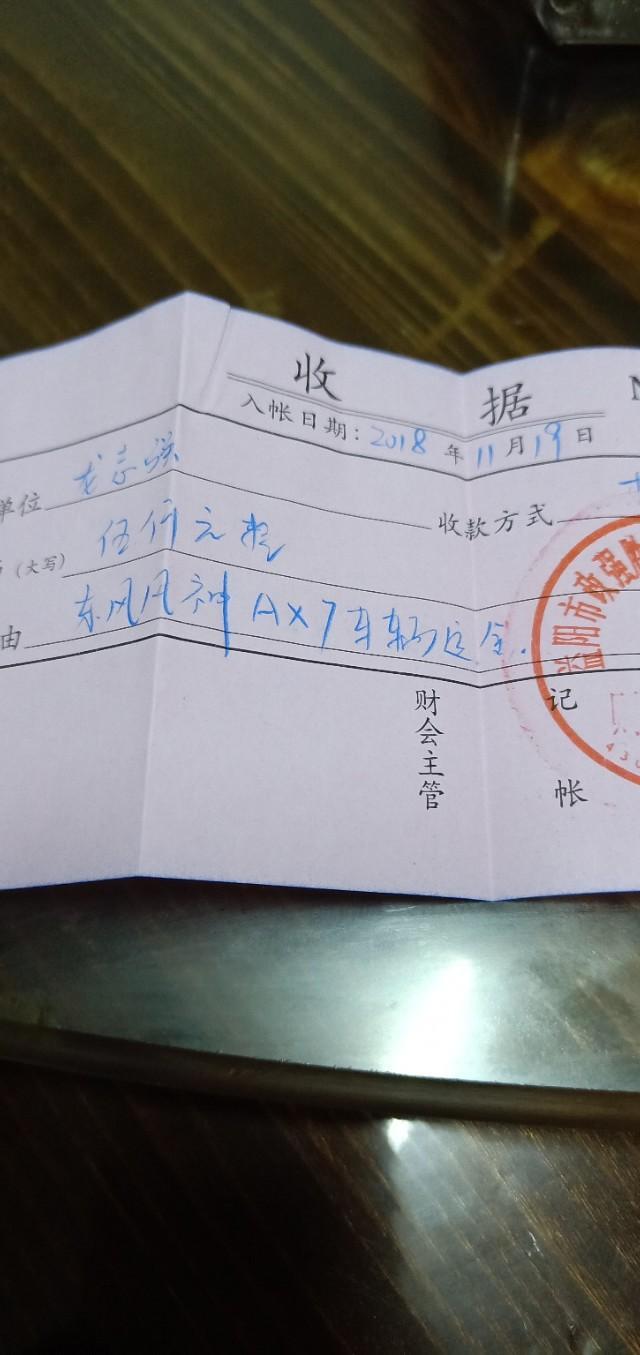 收 据
入帐日期：2018年11月19日
单位 龙志强 收款方式
（大写） 伍仟元整
由 东风风神AX7车辆定金.
财会主管 记帐
益阳市 强胜